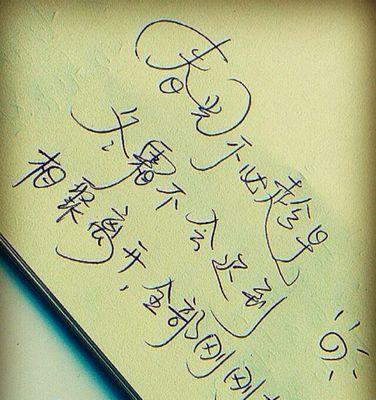 春不必趁早
冬霜不会迟到
相聚离开,全部刚刚